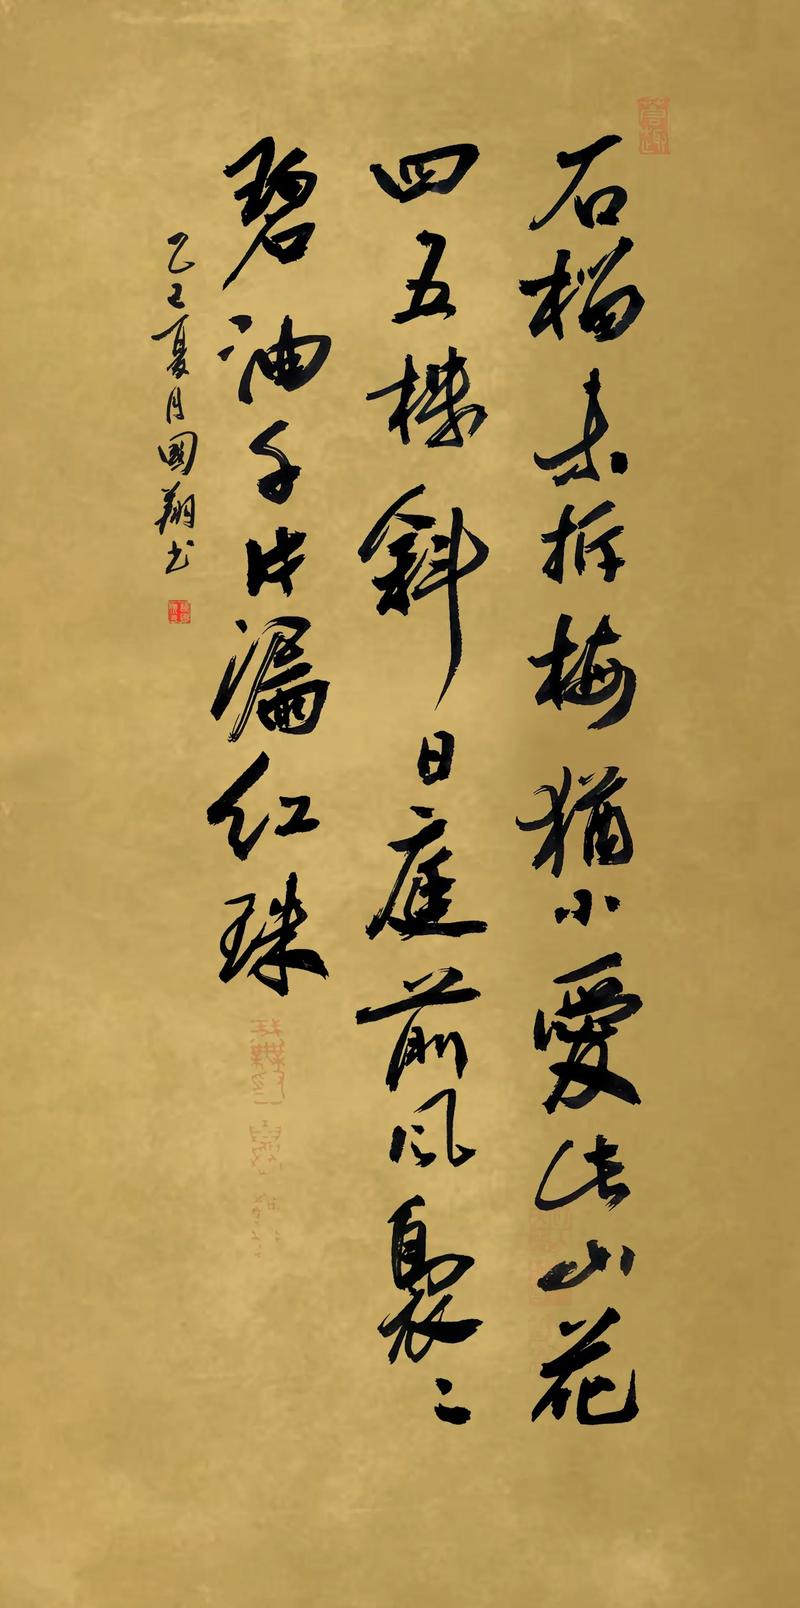 石榴未拆梅猶小愛此山花
四五株斜日庭前风裊々
碧油千片漏红珠
乙巳夏月國翔书